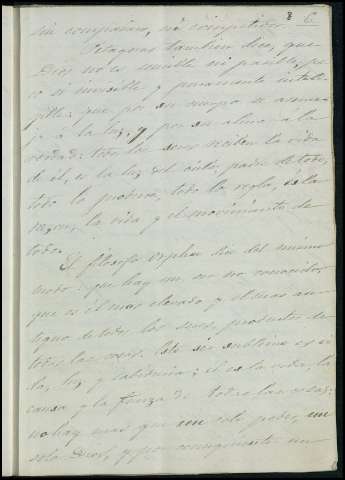 6
sin compañero, ni competidor.
Pitagoras tambien dice, que
Dios no es sensible ni pasible, pe-
ro si invisible y puramente inteli-
gible: que por su cuerpo se aseme-
ja á la luz, y por su alma a la
verdad: todos los seres reciben la vida
de él, es la luz del cielo, padre de todo,
todo lo produce, todo lo regla, és la
razon, la vida y el movimiento de
todo.
El filosofo Orpheo dice del mismo
modo: que hay un ser no conocido
que es el mas elevado y el mas an-
tiguo de todos los seres, productor de
todas las cosas. Este ser sublime es vi-
da, luz y sabiduria; él es la vida, la
causa y la fuerza de todas las cosas:
no hay mas que un solo poder, un
solo Dios, y por consiguiente un